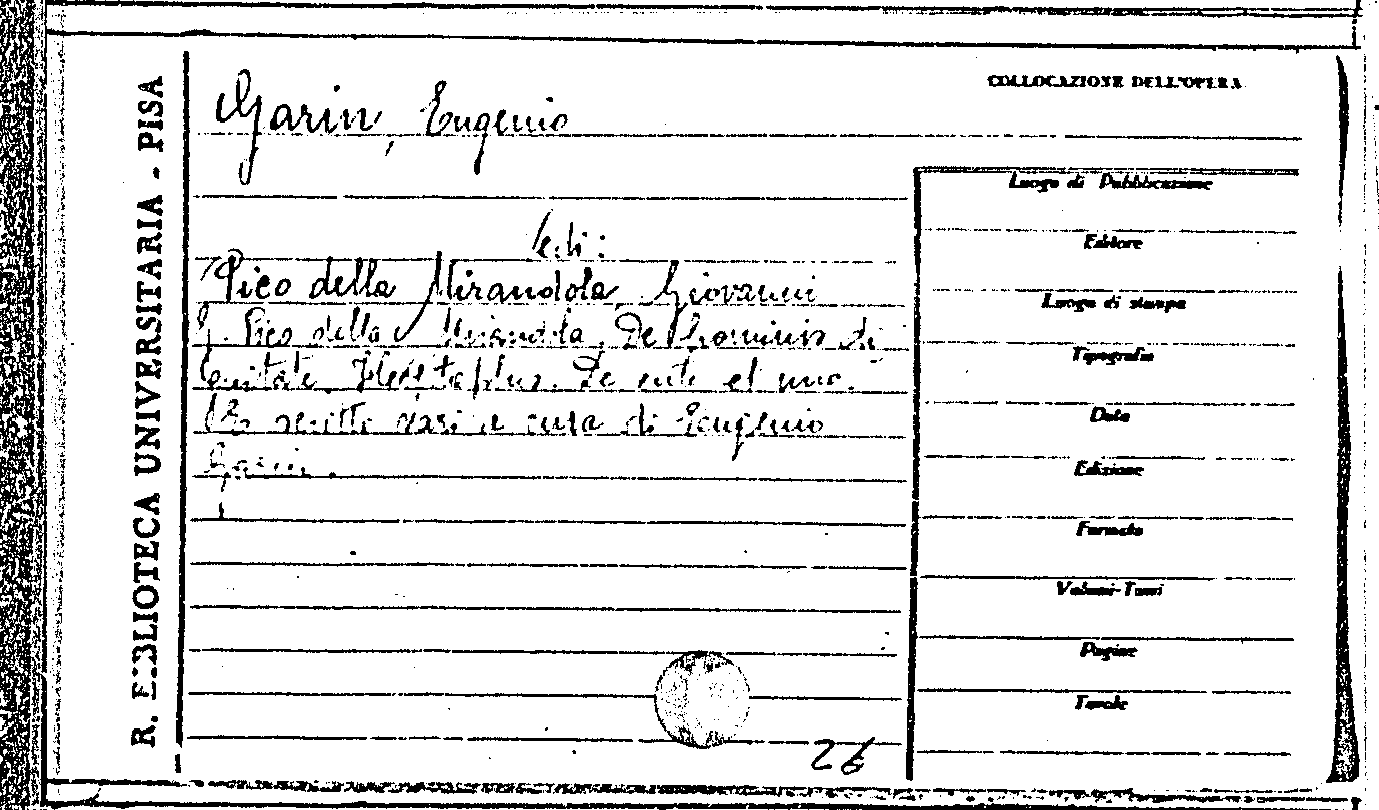 R. BIBLIOTECA UNIVERSITARIA - PISA
Garin, Eugenio
COLLOCAZIONE DELL'OPERA
Vedi:
Pico della Mirandola, Giovanni
G. Pico della Mirandola. De hominis di
gnitate. Heptaplus. De ente et uno.
scritti vari a cura di Eugenio
Garin.
Luogo di Pubblicazione
Editore
Luogo di stampa
Tipografia
Data
Edizione
Formato
Volumi-Tomi
Pagine
Tavole
26